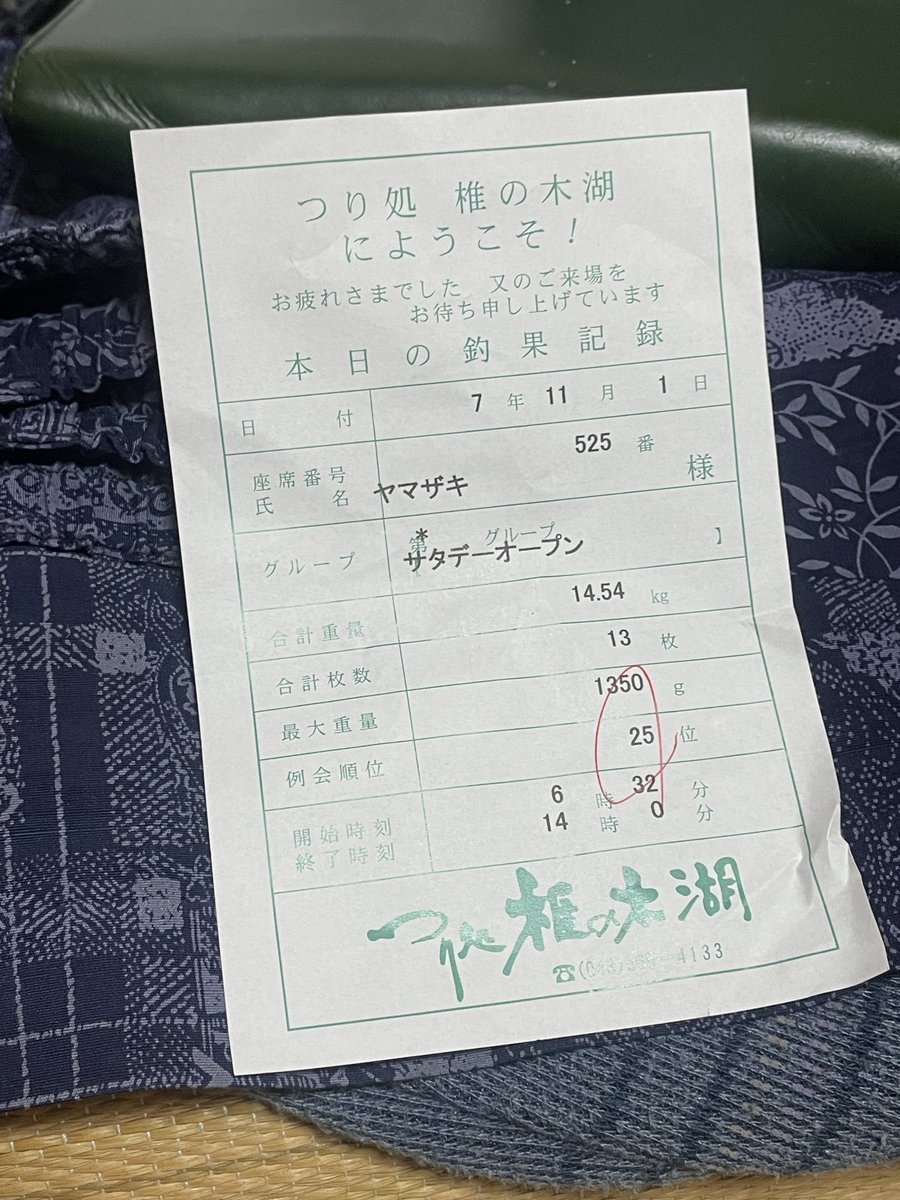 つり処 椎の木湖
にようこそ!
お疲れさまでした 又のご来場を
お待ち申し上げています
本日の釣果記録
日付 7年11月1日
座席番号 525番
氏名 ヤマザキ 様
グループ 第* グループ
サタデーオープン 】
合計重量 14.54 kg
合計枚数 13 枚
最大重量 1350 g
例会順位 25 位
開始時刻 6時32分
終了時刻 14時0分
つり処 椎の木湖
☎ 4133